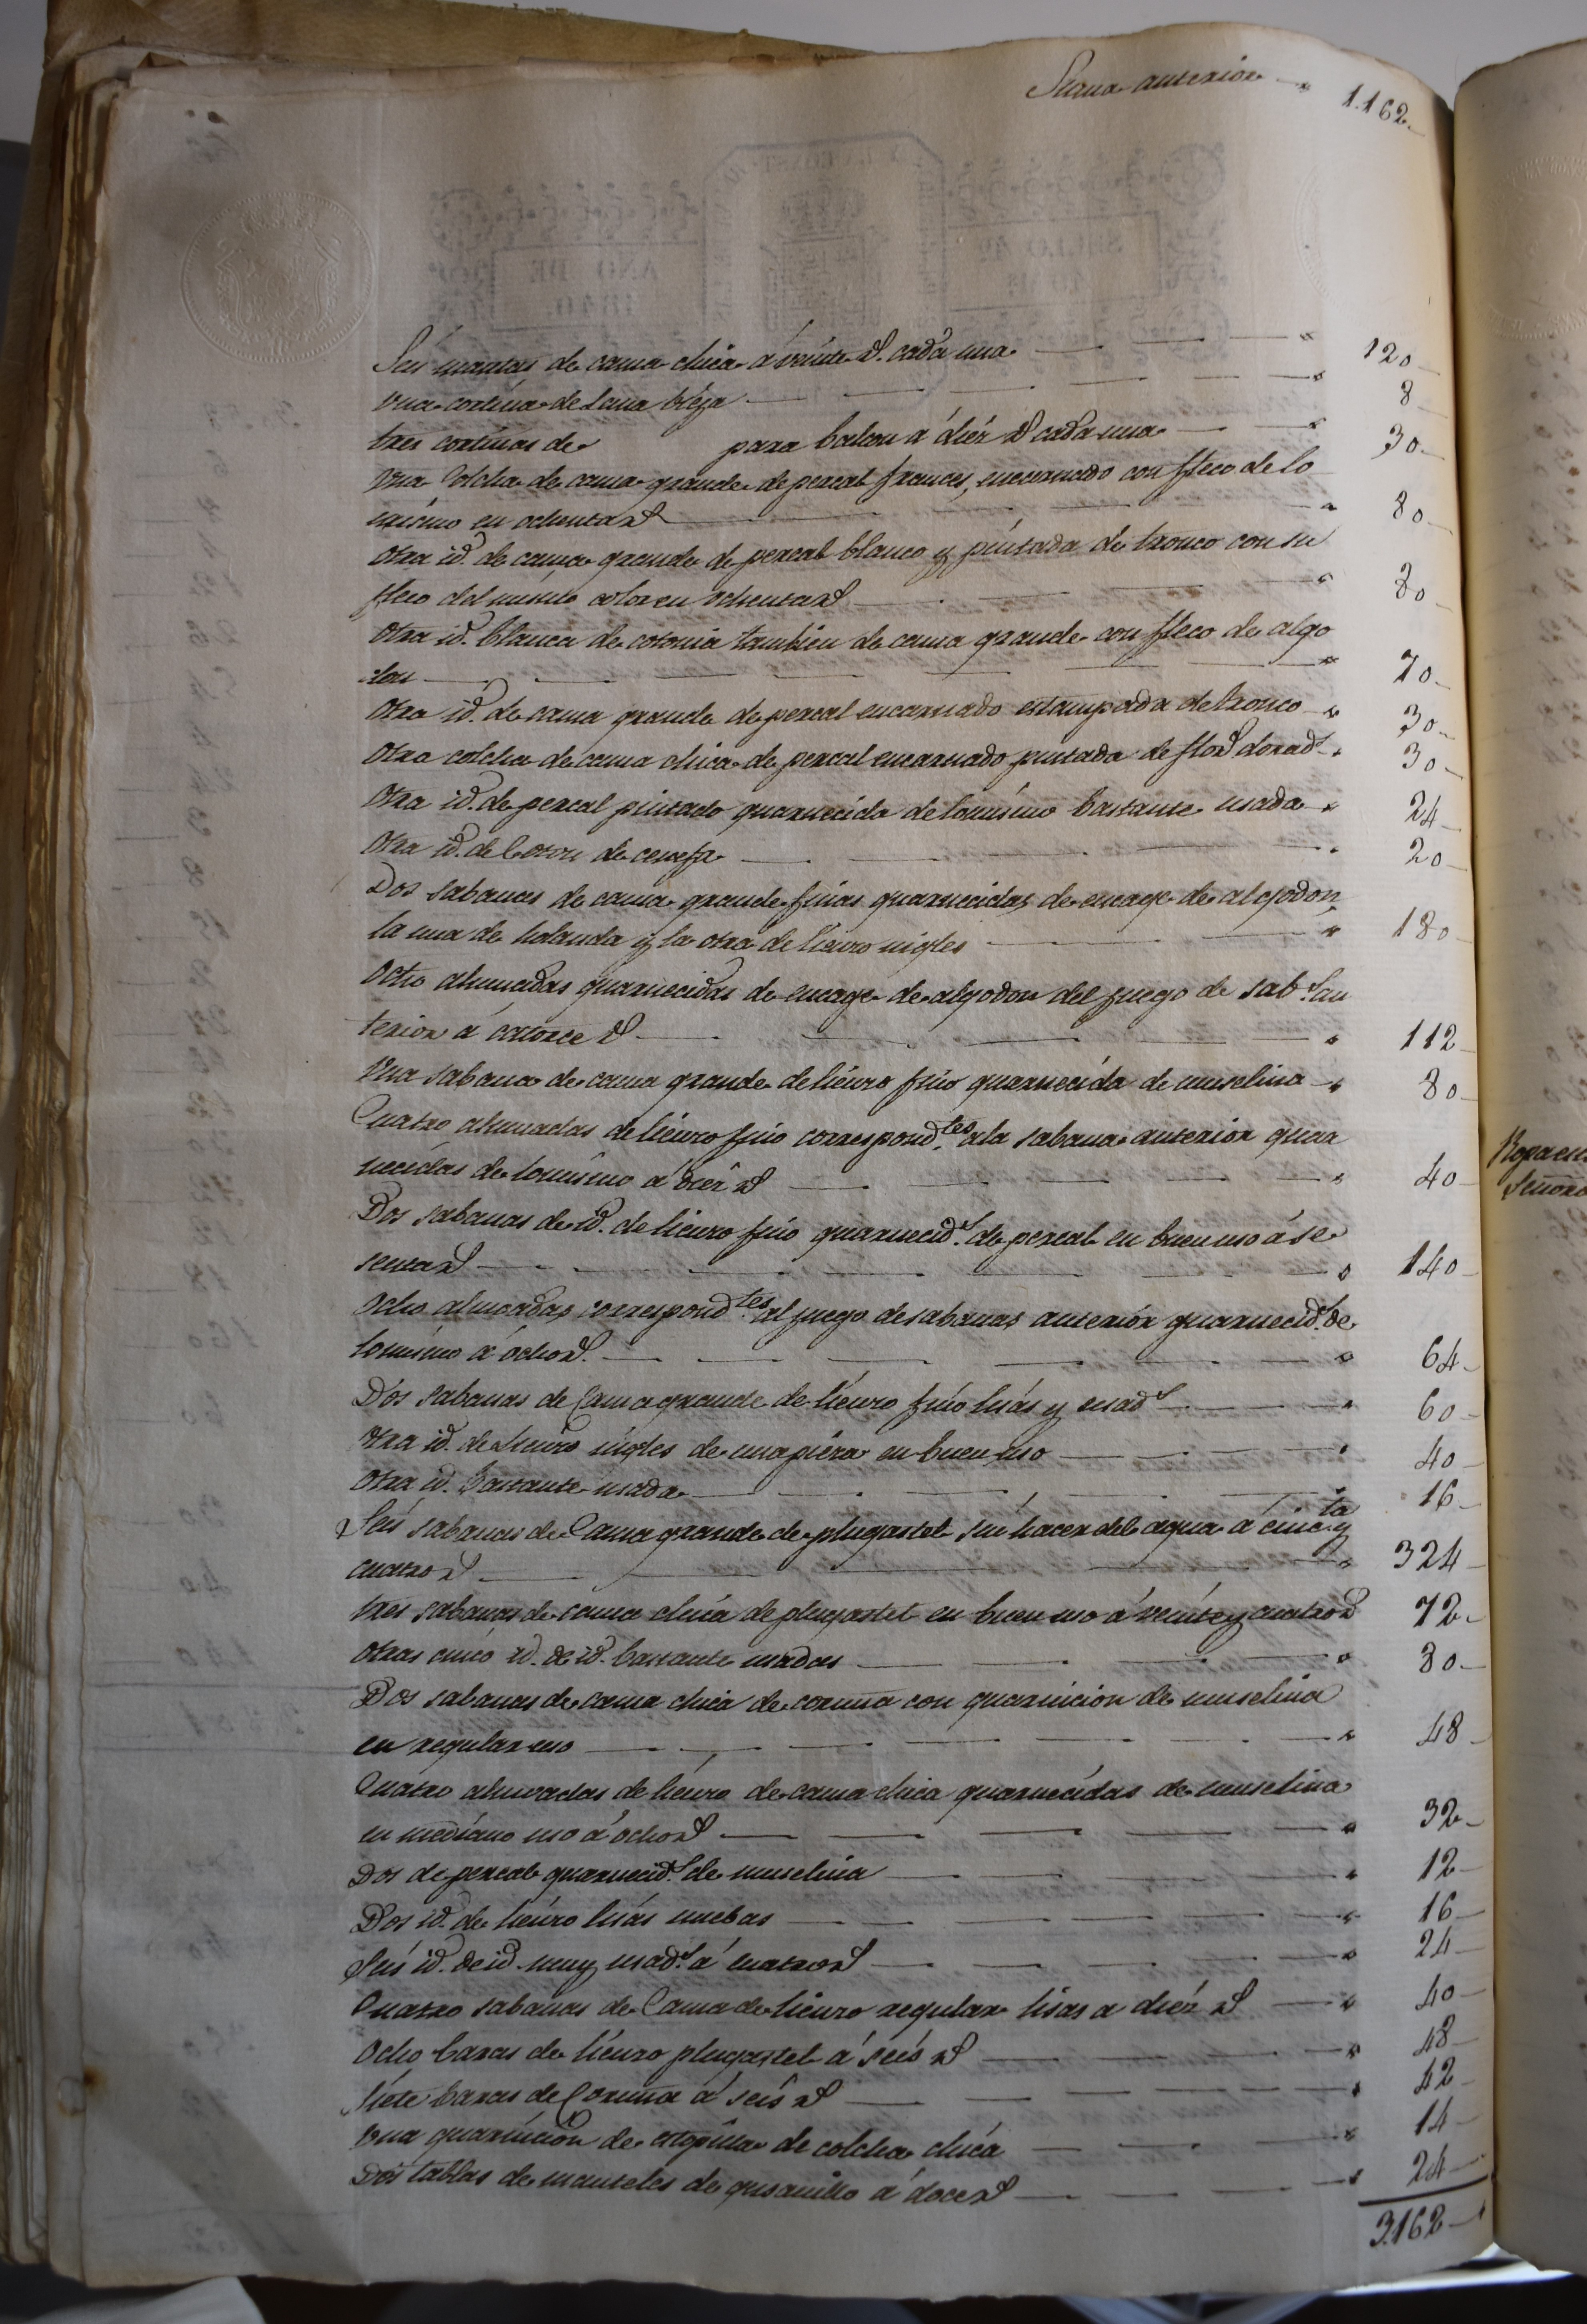 Plana anterior 1.162
Seis mantas de cama chica á veinte rs. cada una 120
Una cortina de Lana bieja 8
tres cortinas de para balcon á diez rs cada una 30
Una Colcha de cama grande de percal frances, encarnado con fleco de lo
mismo en ochenta rs 80
Otra id. de cama grande de percal blanco y pintada de tronco con su
fleco del mismo color en ochenta rs 80
Otra id. blanca de cotonia tambien de cama grande con fleco de algo
don 70
Otra id. de cama grande de percal encarnado estampada de tronco 30
Otra colcha de cama chica de percal encarnado pintada de flors dorads 30
Otra id. de percal pintado guarnecida de lo mismo bastante usada 24
Otra id. de de cenefa 20
Dos sabanas de cama grande finas guarnecidas de encage de algodon,
la una de holanda y la otra de lienzo ingles 180
Ocho almuadas guarnecidas de encage de algodon del juego de sabs. an
terior á catorce rs 112
Una sabana de cama grande de lienzo fino guarnecida de muselina 80
Cuatro almuadas de lienzo fino correspondtes. a la sabana anterior guar
necidas de lo mismo á diez rs 40
Dos sabanas de id. de lienzo fino guarnecids. de percal en buen uso á se
tenta rs 140
Ocho almoadas correspondtes. al juego de sabanas anterior guarnecids. de
lo mismo á ocho rs. 64
Dos sabanas de Cama grande de lienzo fino lisas y usads 60
Otra id. de Lienzo ingles de una pieza en buen uso 40
Otra id. bastante usada 16
Seis sabanas de Cama grande de plugastel sin hacer del agua á cincta y
cuatro rs 324
tres sabanas de cama chica de plugastel en buen uso á veinte y cuatro rs 72
Otras cinco id. de id. bastante usadas 80
Dos sabanas de cama chica de coruña con guarnicion de muselina
en regular uso 48
Cuatro almoadas de lienzo de cama chica guarnecidas de muselina
en mediano uso á ocho rs 32
Dos de percal guarnecids. de muselina 12
Dos id. de lienzo lisas nuebas 16
Seis id. de id. muy usads. á cuatro rs 24
Cuatro sabanas de Cama de lienzo regular lisas a diez rs 40
Ocho baras de lienzo plugastel á seis rs 48
Siete baras de Coruña á seis rs 42
Una guarnicion de estopilla de colcha chica 14
Dos tablas de manteles de gusanillo á doce rs 24
3.162
Ropa en
Señora